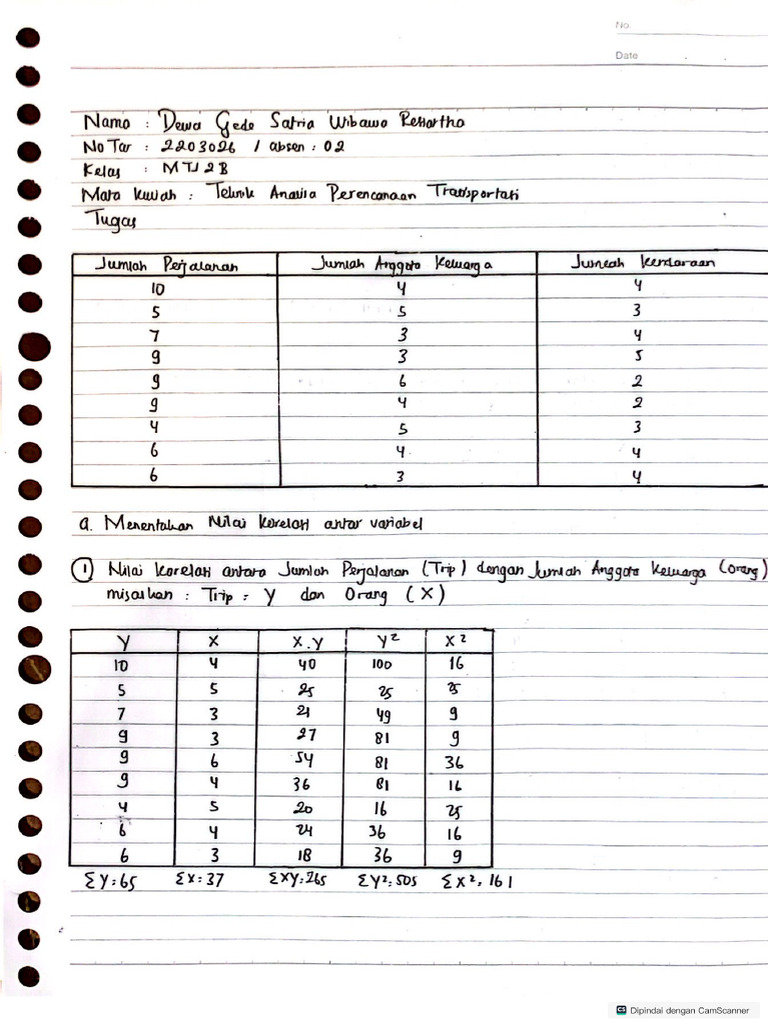 No
Date
Nama : Dewa Gede Satria Wibawa Restartha
No Tar : 2203026 / absen : 02
Kelas : MTJ 2B
Mata kuliah : Teknik Analisa Perencanaan Transportasi
Tugas
Jumlah Perjalanan Jumlah Anggota Keluarga Jumlah Kendaraan
10 4 4
5 5 3
7 3 4
9 3 5
9 6 2
9 4 2
4 5 3
6 4 4
6 3 4
a. Menentukan Nilai korelasi antar variabel
1 Nilai korelasi antara Jumlah Perjalanan (Trip) dengan Jumlah Anggota Keluarga (orang)
misalkan : Trip = Y dan Orang (X)
Y X X.Y Y² X²
10 4 40 100 16
5 5 25 25 25
7 3 21 49 9
9 3 27 81 9
9 6 54 81 36
9 4 36 81 16
4 5 20 16 25
6 4 24 36 16
6 3 18 36 9
ΣY=65 Σx=37 ΣXY=265 ΣY²=505 ΣX²=161
CS Dipindai dengan CamScanner